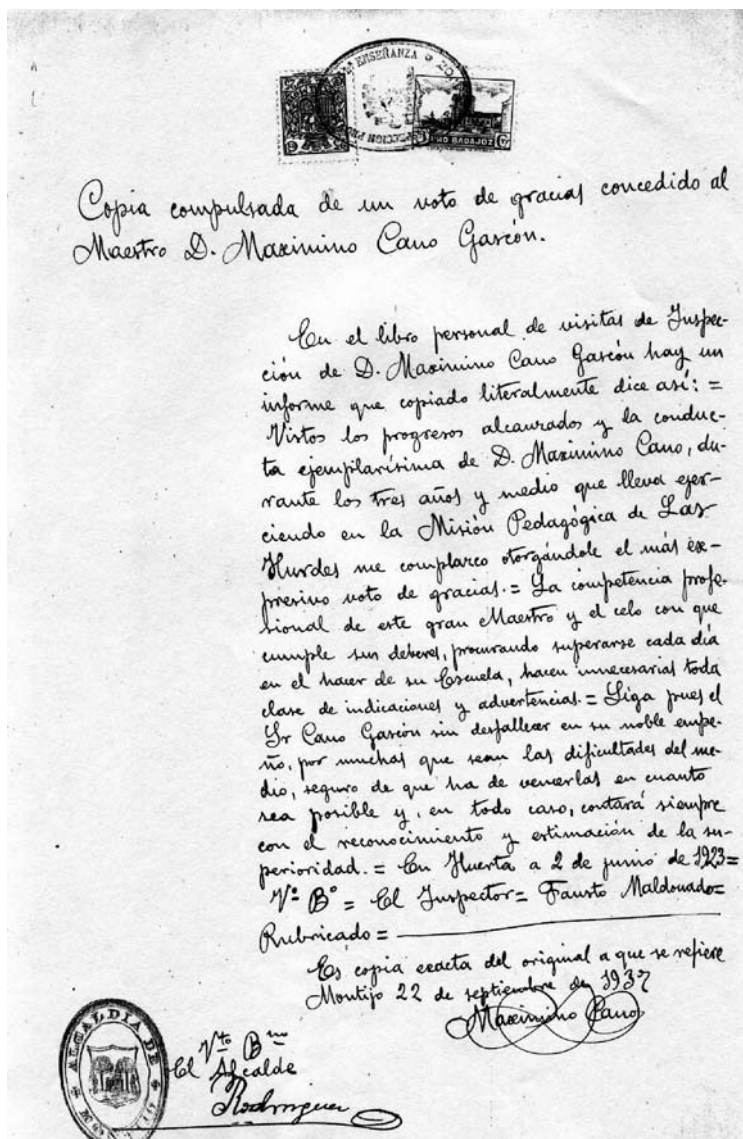 ENSEÑANZA
PRO BADAJOZ
Copia compulsada de un voto de gracias concedido al
Maestro D. Maximino Cano Gascón.
En el libro personal de visitas de Inspec-
ción de D. Maximino Cano Gascón hay un
informe que copiado literalmente dice así: =
Vistos los progresos alcanzados y la conduc-
ta ejemplarísima de D. Maximino Cano, du-
rante los tres años y medio que lleva ejer-
ciendo en la Misión Pedagógica de Las
Hurdes me complazco otorgándole el más ex-
presivo voto de gracias. = La competencia profe-
sional de este gran Maestro y el celo con que
cumple sus deberes, procurando superarse cada día
en el hacer de su Escuela, hacen innecesarias toda
clase de indicaciones y advertencias. = Siga pues el
Sr Cano Gascón sin desfallecer en su noble empe-
ño, por muchas que sean las dificultades del me-
dio, seguro de que ha de vencerlas en cuanto
sea posible y, en todo caso, contará siempre
con el reconocimiento y estimación de la su-
perioridad. = En Huerta a 2 de junio de 1923 =
Vº Bº = El Inspector = Fausto Maldonado =
Rubricado =
Es copia exacta del original a que se refiere
Montijo 22 de septiembre de 1937
Maximino Cano
Vto Bno
El Alcalde
Rodriguez
ALCALDIA DE